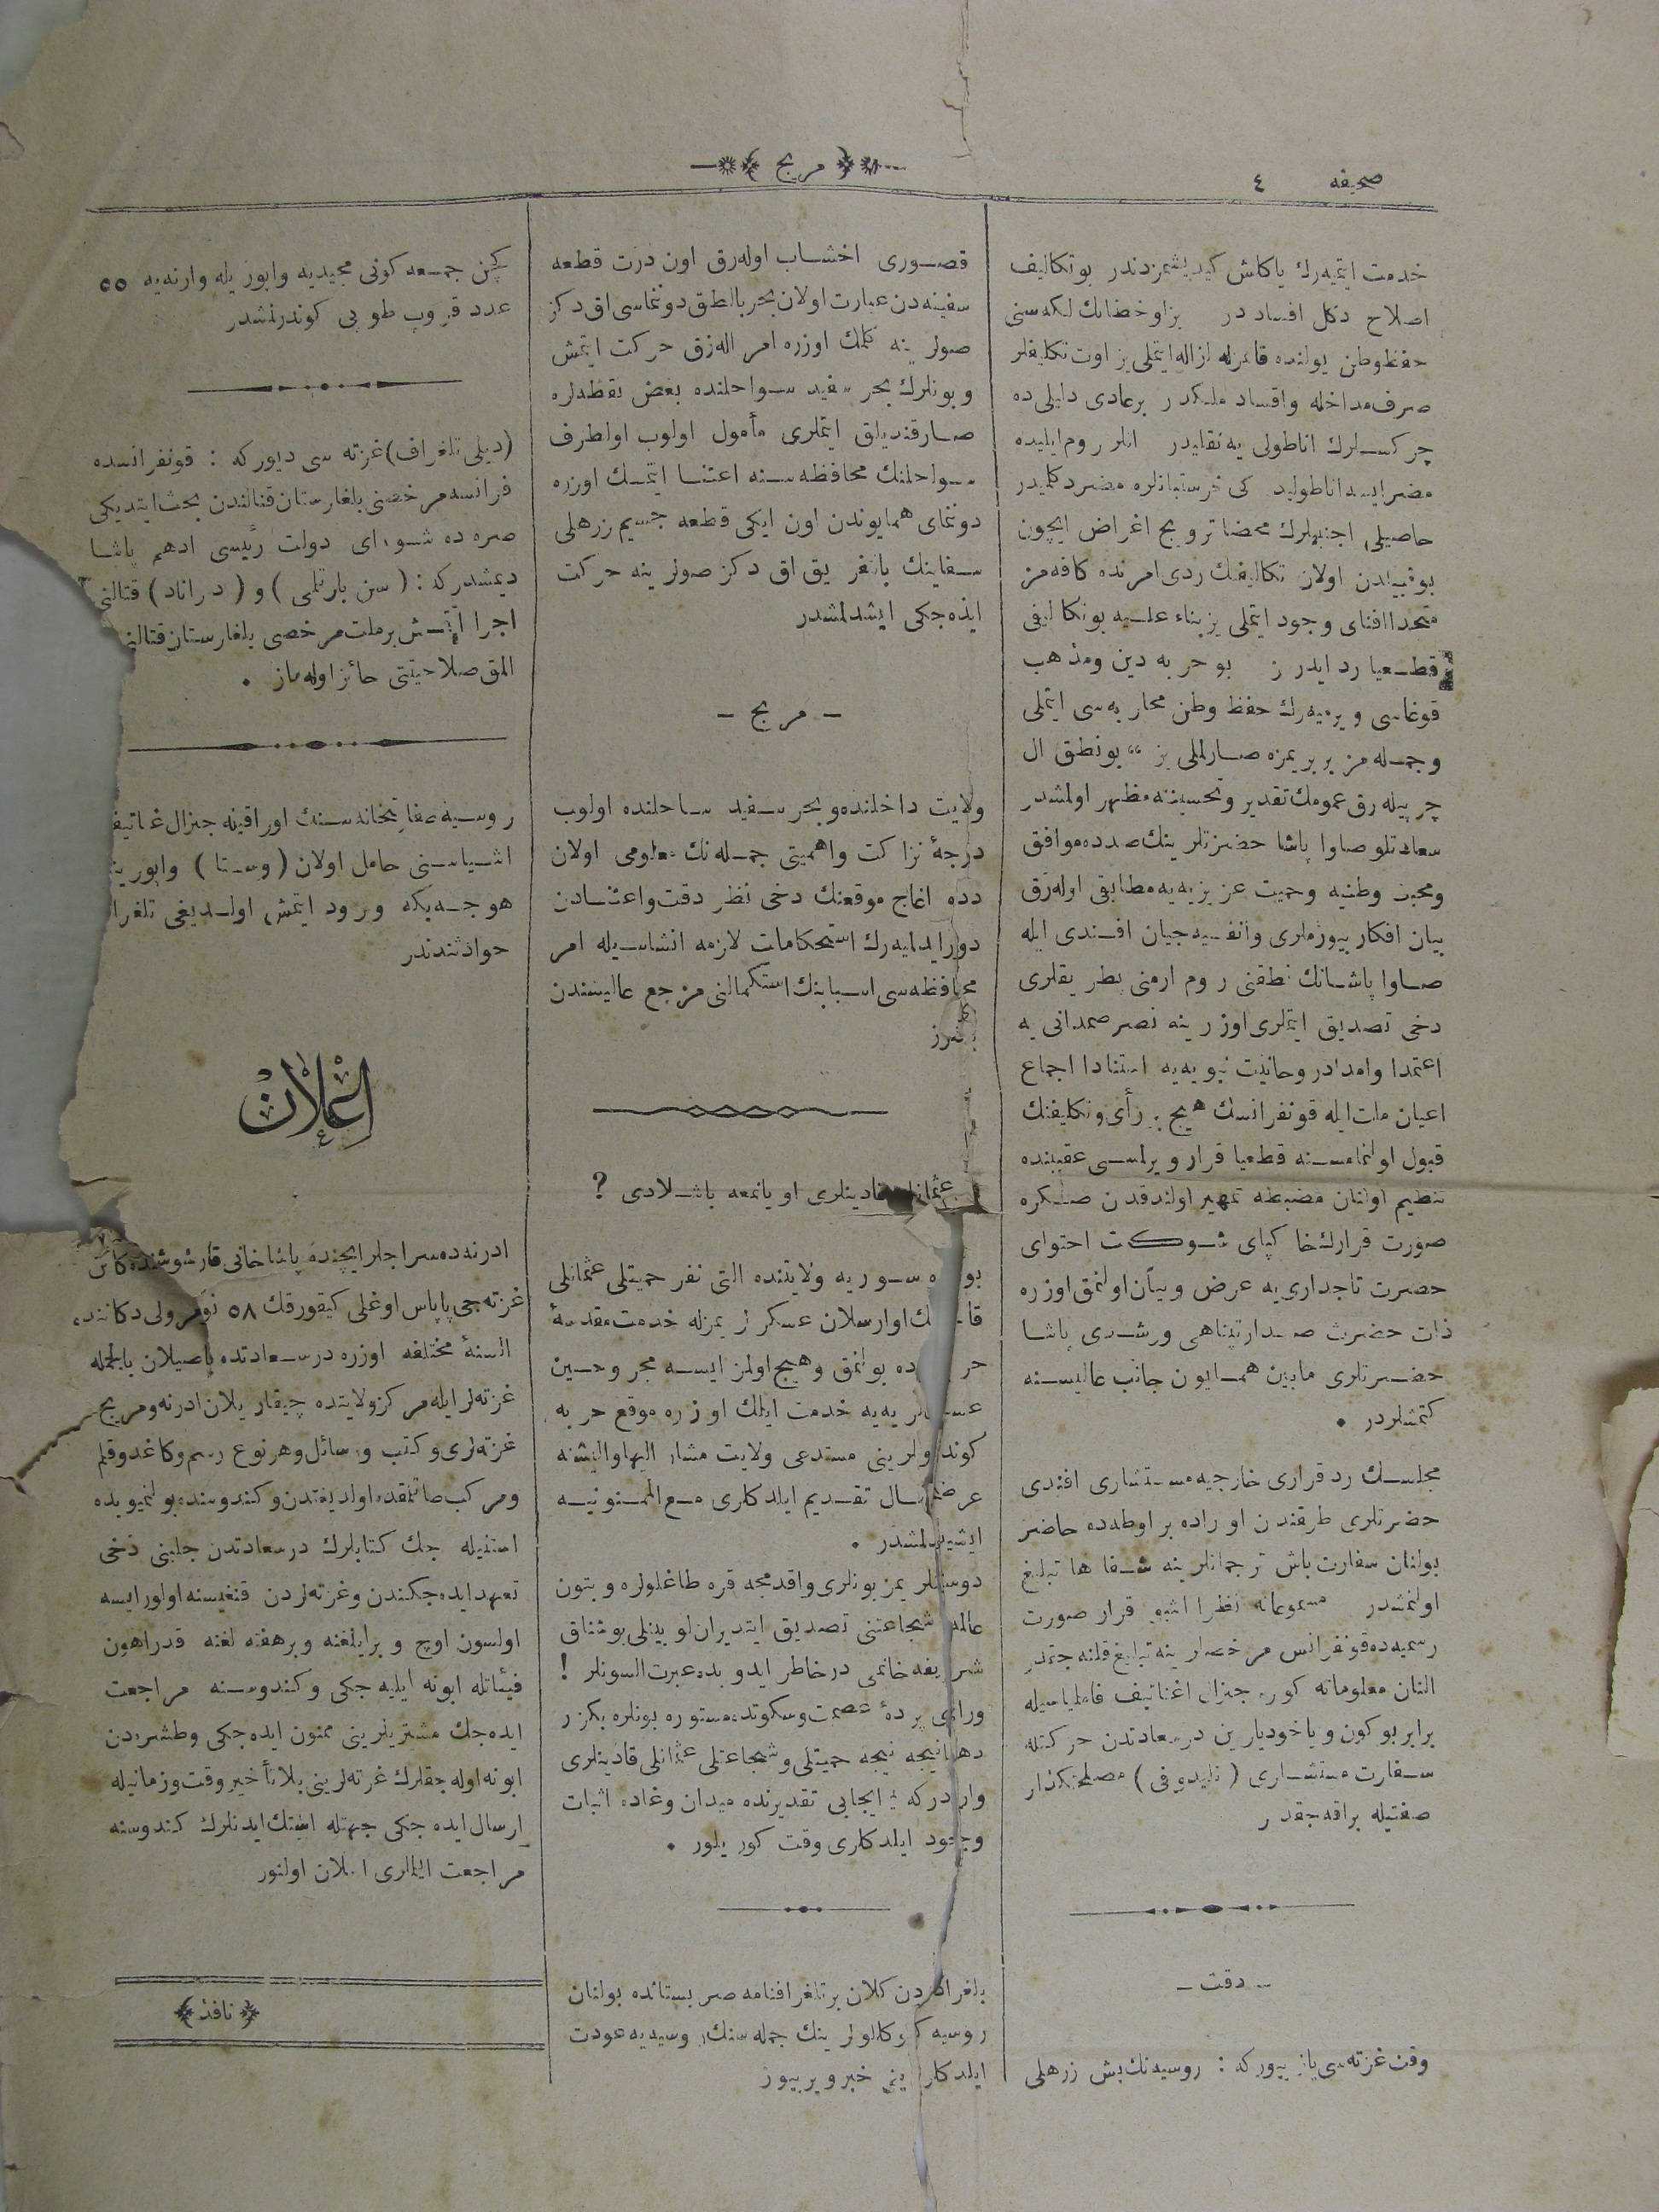 صحیفه ٤
مریج
خدمت ایتمیه‌رك یا كلش كیدیشمزدندر بو تكالیف
اصلاح دكل افساد در بز او خضابك لكه‌سنی
حفظ وطن یولنده قانمزله ازاله ایتملی یز اوت تكلیفلر
صرف مداخله و افساد ملكدر بر عادی دلیلی ده
چركسلرك اناطولی یه نقلیدر انلر روم ایلیده
مضر ایسه اناطولیده كی خرستیانلره مضر دكلمیدر
حاصلی اجنبیلرك محضا ترویج اغراض ایچون
بو قبیلدن اولان تكالیفك ردی امرنده كافه‌مز
متحدا افنای وجود ایتملی یز بناء علیه بو تكالیفی
قطعیا رد ایدرز بو حربه دین و مذهب
قوغاسی ویرمیه‌رك حفظ وطن محاربه‌سی ایتملی
و جمله‌مز بربریمزه صارلملی یز “ بو نطق ال
چرپیله‌رق عمومك تقدیر و تحسیننه مظهر اولمشدر
سعادتلو صاوا پاشا حضرتلرینك صدده موافق
و محبت وطنیه و حمیت عزیزیه‌یه مطابق اوله‌رق
بیان افكار بیورملری و انفیه‌جیان افندی ایله
صاوا پاشانك نطقنی روم ارمنی پطریقلری
دخی تصدیق ایتملری اوزرینه نصر صمدانی یه
اعتمدا و امداد روحانیت نبویه‌یه استنادا اجماع
اعیان ملت ایله قونفرانسك هیچ بر رأی و تكلیفنك
قبول اولنمامسنه قطعیا قرار ویرلمسی عقیبنده
تنظیم اولنان مضبطه تمهیر اولندقدن صكره
صورت قرارك خاكپای شوكت احتوای
حضرت تاجداری‌یه عرض و بیان اولنمق اوزره
ذات حضرت صدارتپناهی و رشدی پاشا
حضرتلری مابین همایون جانب عالیسنه
كتمشلردر .
مجلسك رد قراری خارجیه مستشاری افندی
حضرتلری طرفندن اوراده بر اوطه‌ده حاضر
بولنان سفارت باش ترجمانلرینه شفاها تبلیغ
اولنمشدر مسموعاته نظرا اشبو قرار صورت
رسمیه‌ده قونفرانس مرخصلرینه تبلیغ قلنه‌جقدر
النان معلوماته كوره جنرال اغناتیف فامیلیاسیله
برابر بو كون و یاخود یارین درسعادتدن حركتله
سفارت مستشاری ( نلیدوفی ) مصلحتگذار
صفتیله براقه‌جقدر
ـ دقت ـ
وقت غزته‌سی یازییوركه : روسیه‌نك بش زرهلی
قصوری اخشاب اوله‌رق اون درت قطعه
سفینه‌دن عبارت اولان بحر بالطق دوننماسی اق دكز
صولرینه كلمك اوزره امر اله‌رق حركت ایتمش
و بونلرك بحر سفید سواحلنده بعض نقطه‌لره
صارقندیلق ایتملری مأمول اولوب اولطرف
سواحلنك محافظه‌سنه اعتنا ایتمك اوزره
دوننمای همایوندن اون ایكی قطعه جسیم زرهلی
سفاینك بالتفریق اق دكز صولرینه حركت
ایده‌جكی ایشدلمشدر
ـ مریج ـ
ولایت داخلنده و بحر سفید ساحلنده اولوب
درجهٔ نزاكت و اهمیتی جمله‌نك معلومی اولان
دده اغاج موقعنك دخی نظر دقت و اعتنادن
دور ایدلمیه‌رك استحكامات لازمه انشاسیله امر
محافظه‌سی اسبابنك استكمالنی مرجع عالیسندن
عثمانلی قادینلری اویانمغه باشلادی ؟
سوریه ولایتنده التی نفر حمیتلی عثمانلی
اوارسلان عسكرلریمزله خدمت مقدسهٔ
ده بولنمق و هیچ اولمز ایسه مجروحین
یه‌یه خدمت ایلمك اوزره موقع حربه
كوندرلرینی مستدعی ولایت مشار الیها والیسنه
عرضحال تقدیم ایلدكلری مع الممنونیه
ایشیدلمشدر .
دوستلریمز بونلری و اقدمجه قره طاغلولره و بتون
عالمه شجاعتنی تصدیق ایتدیران لوبینلی بوشناق
شریفه خانمی در خاطر ایدوبده عبرت السونلر !
ورای پردهٔ عصمت و سكوتده مستوره بونلره بكزر
دها نیجه نیجه حمیتلی و شجاعتلی عثمانلی قادینلری
واردركه ایجابی تقدیرنده میدان وغاده اثبات
وجود ایلدكلری وقت كوریلور .
بلغراددن كلان بر تلغرافنامه صربستانده بولنان
روسیه كوكللولرینك جمله‌سنك روسیه‌یه عودت
ایلدكلرینی خبر ویرییور
كچن جمعه كونی مجیدیه واپوریله وارنه‌یه ٥٥
عدد قروپ طوپی كوندرلمشدر
(دیلی تلغراف) غزته‌سی دیوركه : قونفرانسده
فرانسه مرخصنی بلغارستان قتالندن بحث ایتدیكی
صره‌ده شورای دولت رئیسی ادهم پاشا
دیمشدركه : ( سن بارتلمی ) و ( دراناد ) قتالنی
اجرا ایتمش بر ملت مرخصی بلغارستان قتالنی
المق صلاحیتنی حائز اوله‌ماز .
روسیه سفارتخانه‌سنك اوراقیله جنرال غناتیف
اشیاسنی حامل اولان ( وستا ) واپورینك
هوجه‌بكه ورود ایتمش اولدیغی تلغراف
حوادثندندر
اعلان
ادرنه‌ده سراجلر ایچنده پاشا خانی قارشوسنده كائن
غزته‌جی پاپاس اوغلی كیفورقك ٥٨ نومرولی دكاننده
السنهٔ مختلفه اوزره درسعادتده باصیلان بالجمله
غزته‌لر ایله مركز ولایتده چیقاریلان ادرنه و مریج
غزته‌لری و كتب و رسائل و هر نوع رسم و كاغد و قلم
و مركب صاتلمقده اولدیغندن و كندوسنده بولنمیوبده
استنیله‌جك كتابلرك درسعادتدن جلبنی دخی
تعهد ایده‌جكندن و غزته‌لردن قنغیسنه اولور ایسه
اولسون اوچ و بر ایلغنه و بر هفته لغنه قدر اهون
فیئاتله ابونه ایلیه‌جكی و كندوسنه مراجعت
ایده‌جك مشتریلرینی ممنون ایده‌جكی و طشره‌دن
ابونه اوله‌جقلرك غزته‌لرینی بلا تأخیر وقت و زمانیله
ارسال ایده‌جكی جهتله استك ایدنلرك كندوسنه
مراجعت ایلملری اعلان اولنور
نافذ